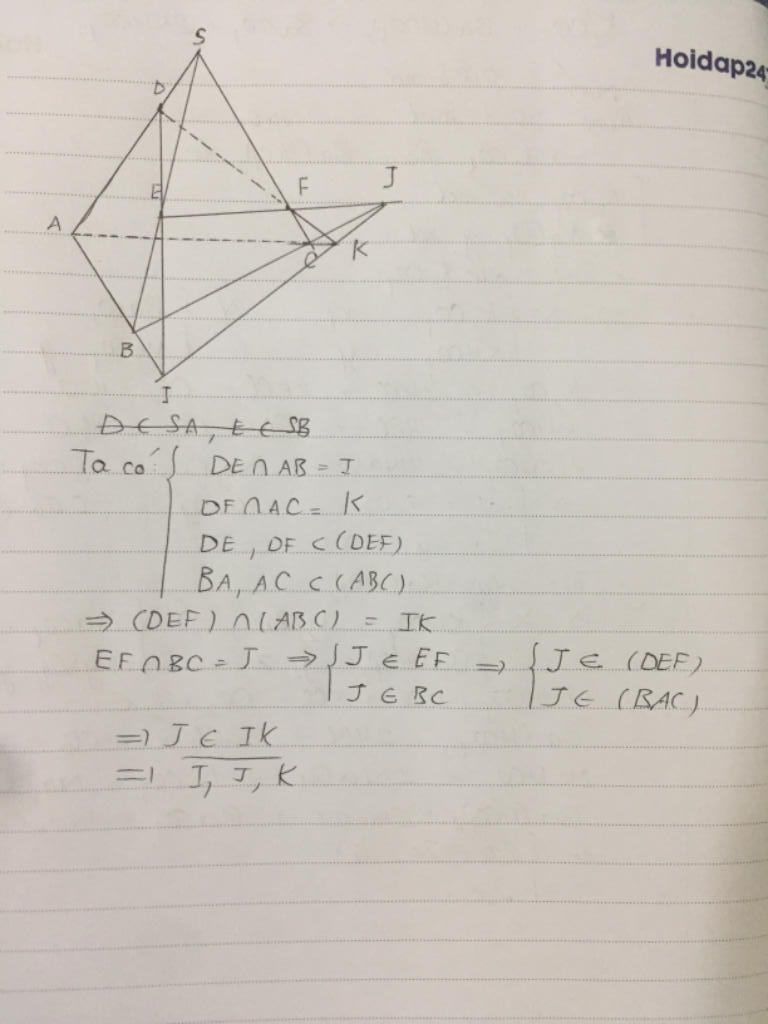 Hoidap247
S
D
E
F
J
A
C
K
B
I
D ∈ SA, E ∈ SB
Ta có { DE ∩ AB = I
DF ∩ AC = K
DE, DF ⊂ (DEF)
BA, AC ⊂ (ABC)
⇒ (DEF) ∩ (ABC) = IK
EF ∩ BC = J ⇒ { J ∈ EF ⇒ { J ∈ (DEF)
J ∈ BC J ∈ (BAC)
⇒ J ∈ IK
⇒ I, J, K